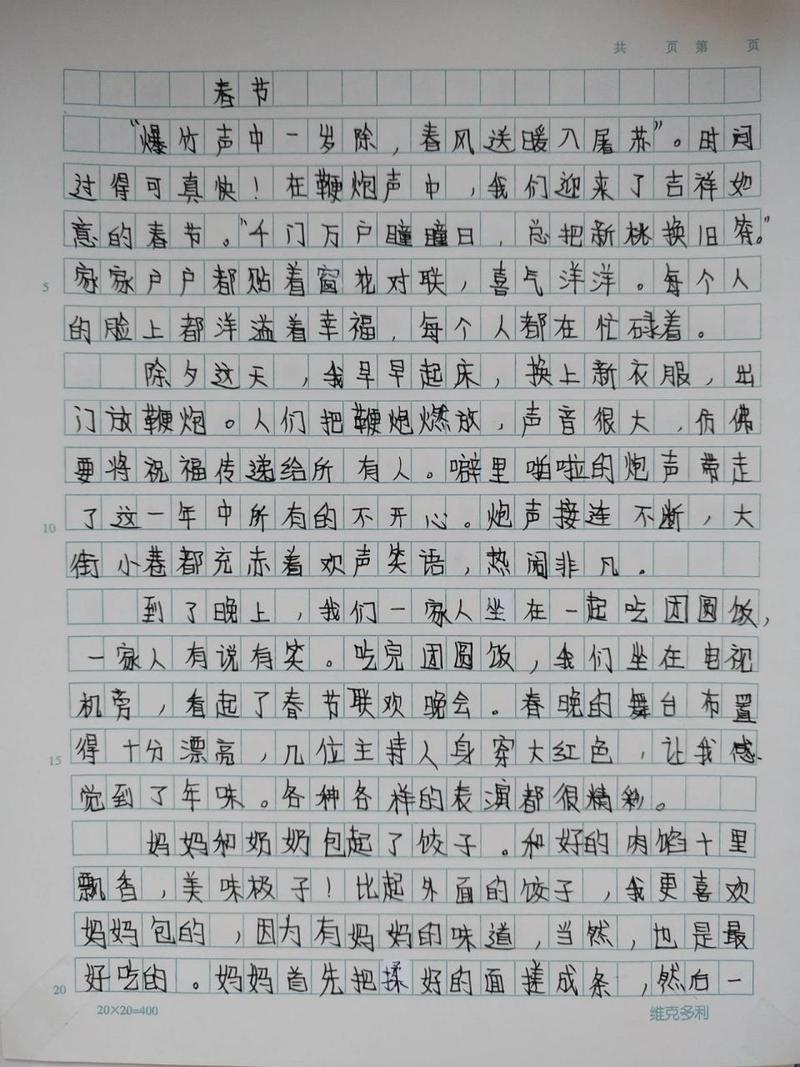 共 页 第 页
春节
“爆竹声中一岁除，春风送暖入屠苏”。时间
过得可真快！在鞭炮声中，我们迎来了吉祥如
意的春节。“千门万户瞳瞳日，总把新桃换旧符。”
5 家家户户都贴着窗花对联，喜气洋洋。每个人
的脸上都洋溢着幸福，每个人都在忙碌着。
除夕这天，我早早起床，换上新衣服，出
门放鞭炮。人们把鞭炮燃放，声音很大，仿佛
要将祝福传递给所有人。噼里啪啦的炮声带走
10 了这一年中所有的不开心。炮声接连不断，大
街小巷都充赤着欢声笑语，热闹非凡。
到了晚上，我们一家人坐在一起吃团圆饭，
一家人有说有笑。吃完团圆饭，我们坐在电视
机旁，看起了春节联欢晚会。春晚的舞台布置
15 得十分漂亮，几位主持人身穿大红色，让我感
觉到了年味。各种各样的表演都很精彩。
妈妈和奶奶包起了饺子。和好的肉馅十里
飘香，美味极子！比起外面的饺子，我更喜欢
妈妈包的，因为有妈妈的味道，当然，也是最
20 好吃的。妈妈首先把揉好的面搓成条，然后一
20×20=400 维克多利